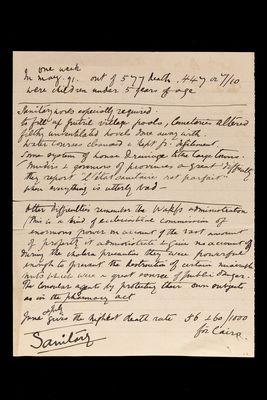 one week
In May 91. out of 577 death. 447 or 7/10
were children under 5 years of age
Sanitary works especially required.
To fill up putrid village pools, Cemeteries altered
filthy unventilated hovels done away with.
Water Courses cleansed & kept fr. defilement.
Some system of house drainage in the large towns.
Mudirs & governors of provinces a great difficulty
they report l'état sanitaire est parfait
when everything is utterly bad —
Other difficulties remember the Wakfs administration
This is a kind of ecclesiastical commission of
enormous power on account of the vast amount
of property it administers & gives no account of
During the cholera precautions they were powerful
enough to prevent the destruction of certain
huts which were a great source of public danger.
The Consular agents by protecting their own subjects
as in the pharmacy act
June & July gives the highest death rate 56 & 60/1000
for Cairo
Sanitary